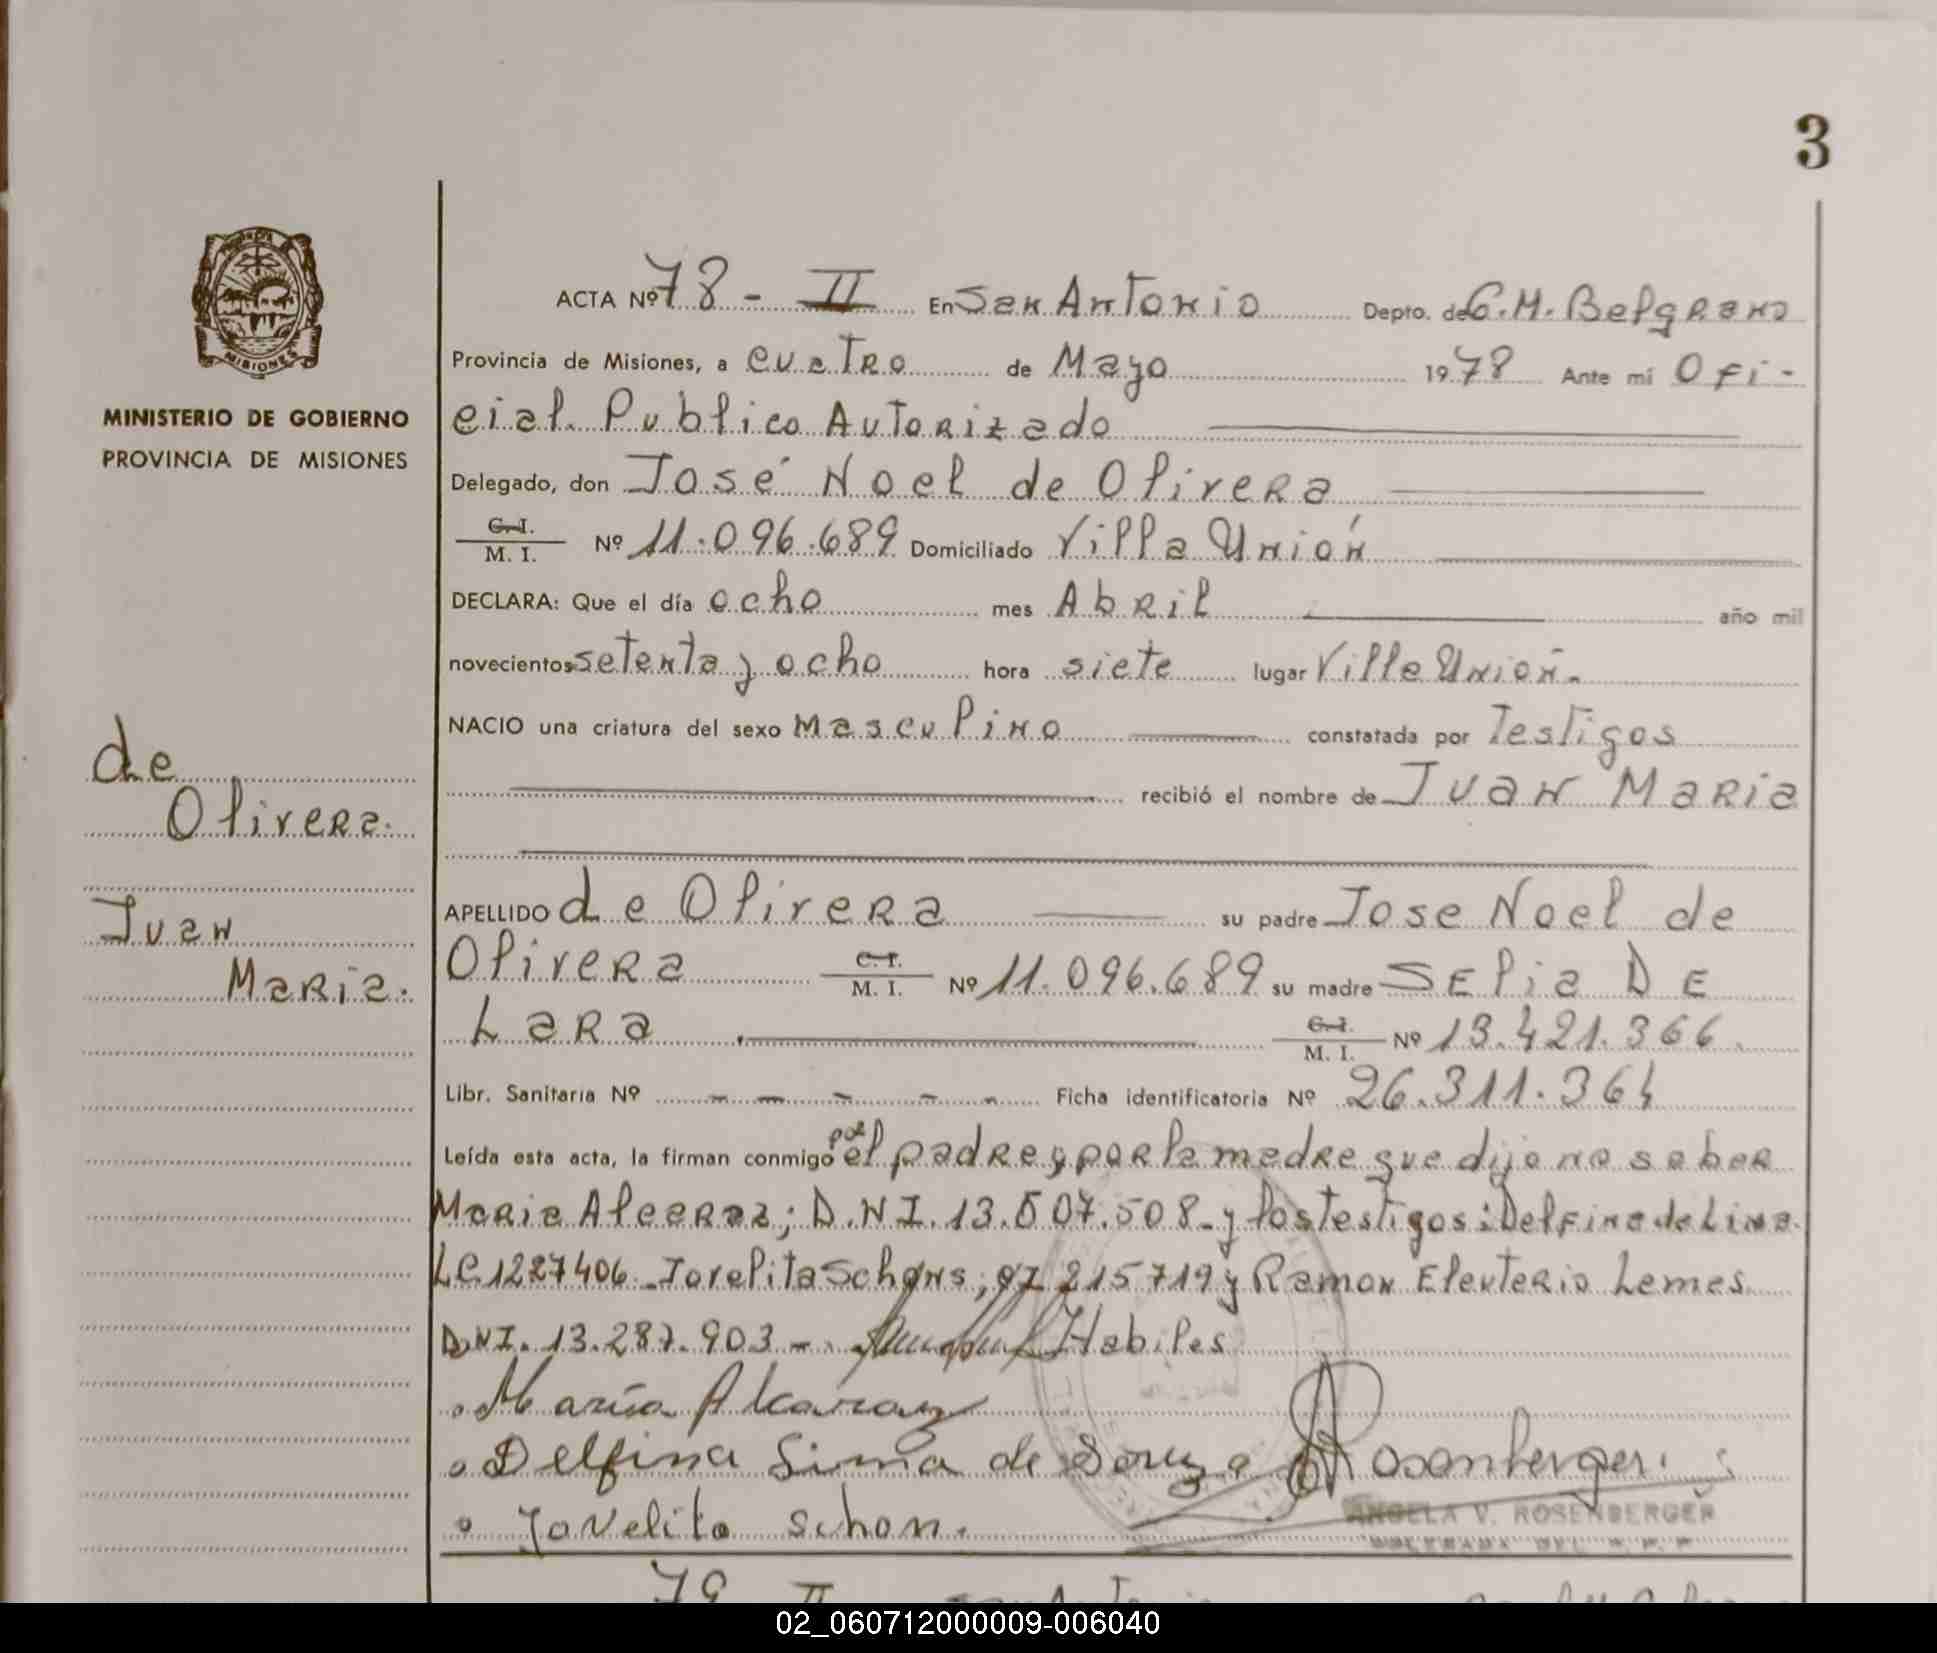 3
ACTA Nº 78 - II En San Antonio Depto. de G.M. Belgrano
Provincia de Misiones, a cuatro de Mayo 1978 Ante mí Ofi-
MINISTERIO DE GOBIERNO
PROVINCIA DE MISIONES
cial Publico Autorizado
Delegado, don José Noel de Olivera
C.I. M. I. Nº 11.096.689 Domiciliado Villa Unión
DECLARA: Que el día ocho mes Abril año mil
novecientos setenta y ocho hora siete lugar Villa Unión.
NACIO una criatura del sexo Masculino constatada por Testigos
recibió el nombre de Juan Maria
de
Olivera.
Juan
Maria.
APELLIDO de Olivera su padre Jose Noel de
Olivera C.I. M. I. Nº 11.096.689 su madre SElia DE
Lara C.I. M. I. Nº 13.421.366.
Libr. Sanitaria Nº - - - - - Ficha identificatoria Nº 26.311.364
Leída esta acta, la firman conmigo por el padre y por la madre que dijo no saber
Maria Alcaraz; D.N.I. 13.507.508- y los testigos: Delfina de Lima
LC 1227406 Jovelita Schons, 215719 y Ramon Eleuterio Lemes
D.N.I. 13.287.903 - Habiles
María Alcaraz
Delfina Lima de Souza Rosenberger
Jovelita Schon.
ANGELA V. ROSENBERGER
79 II San Antonio
02_060712000009-006040